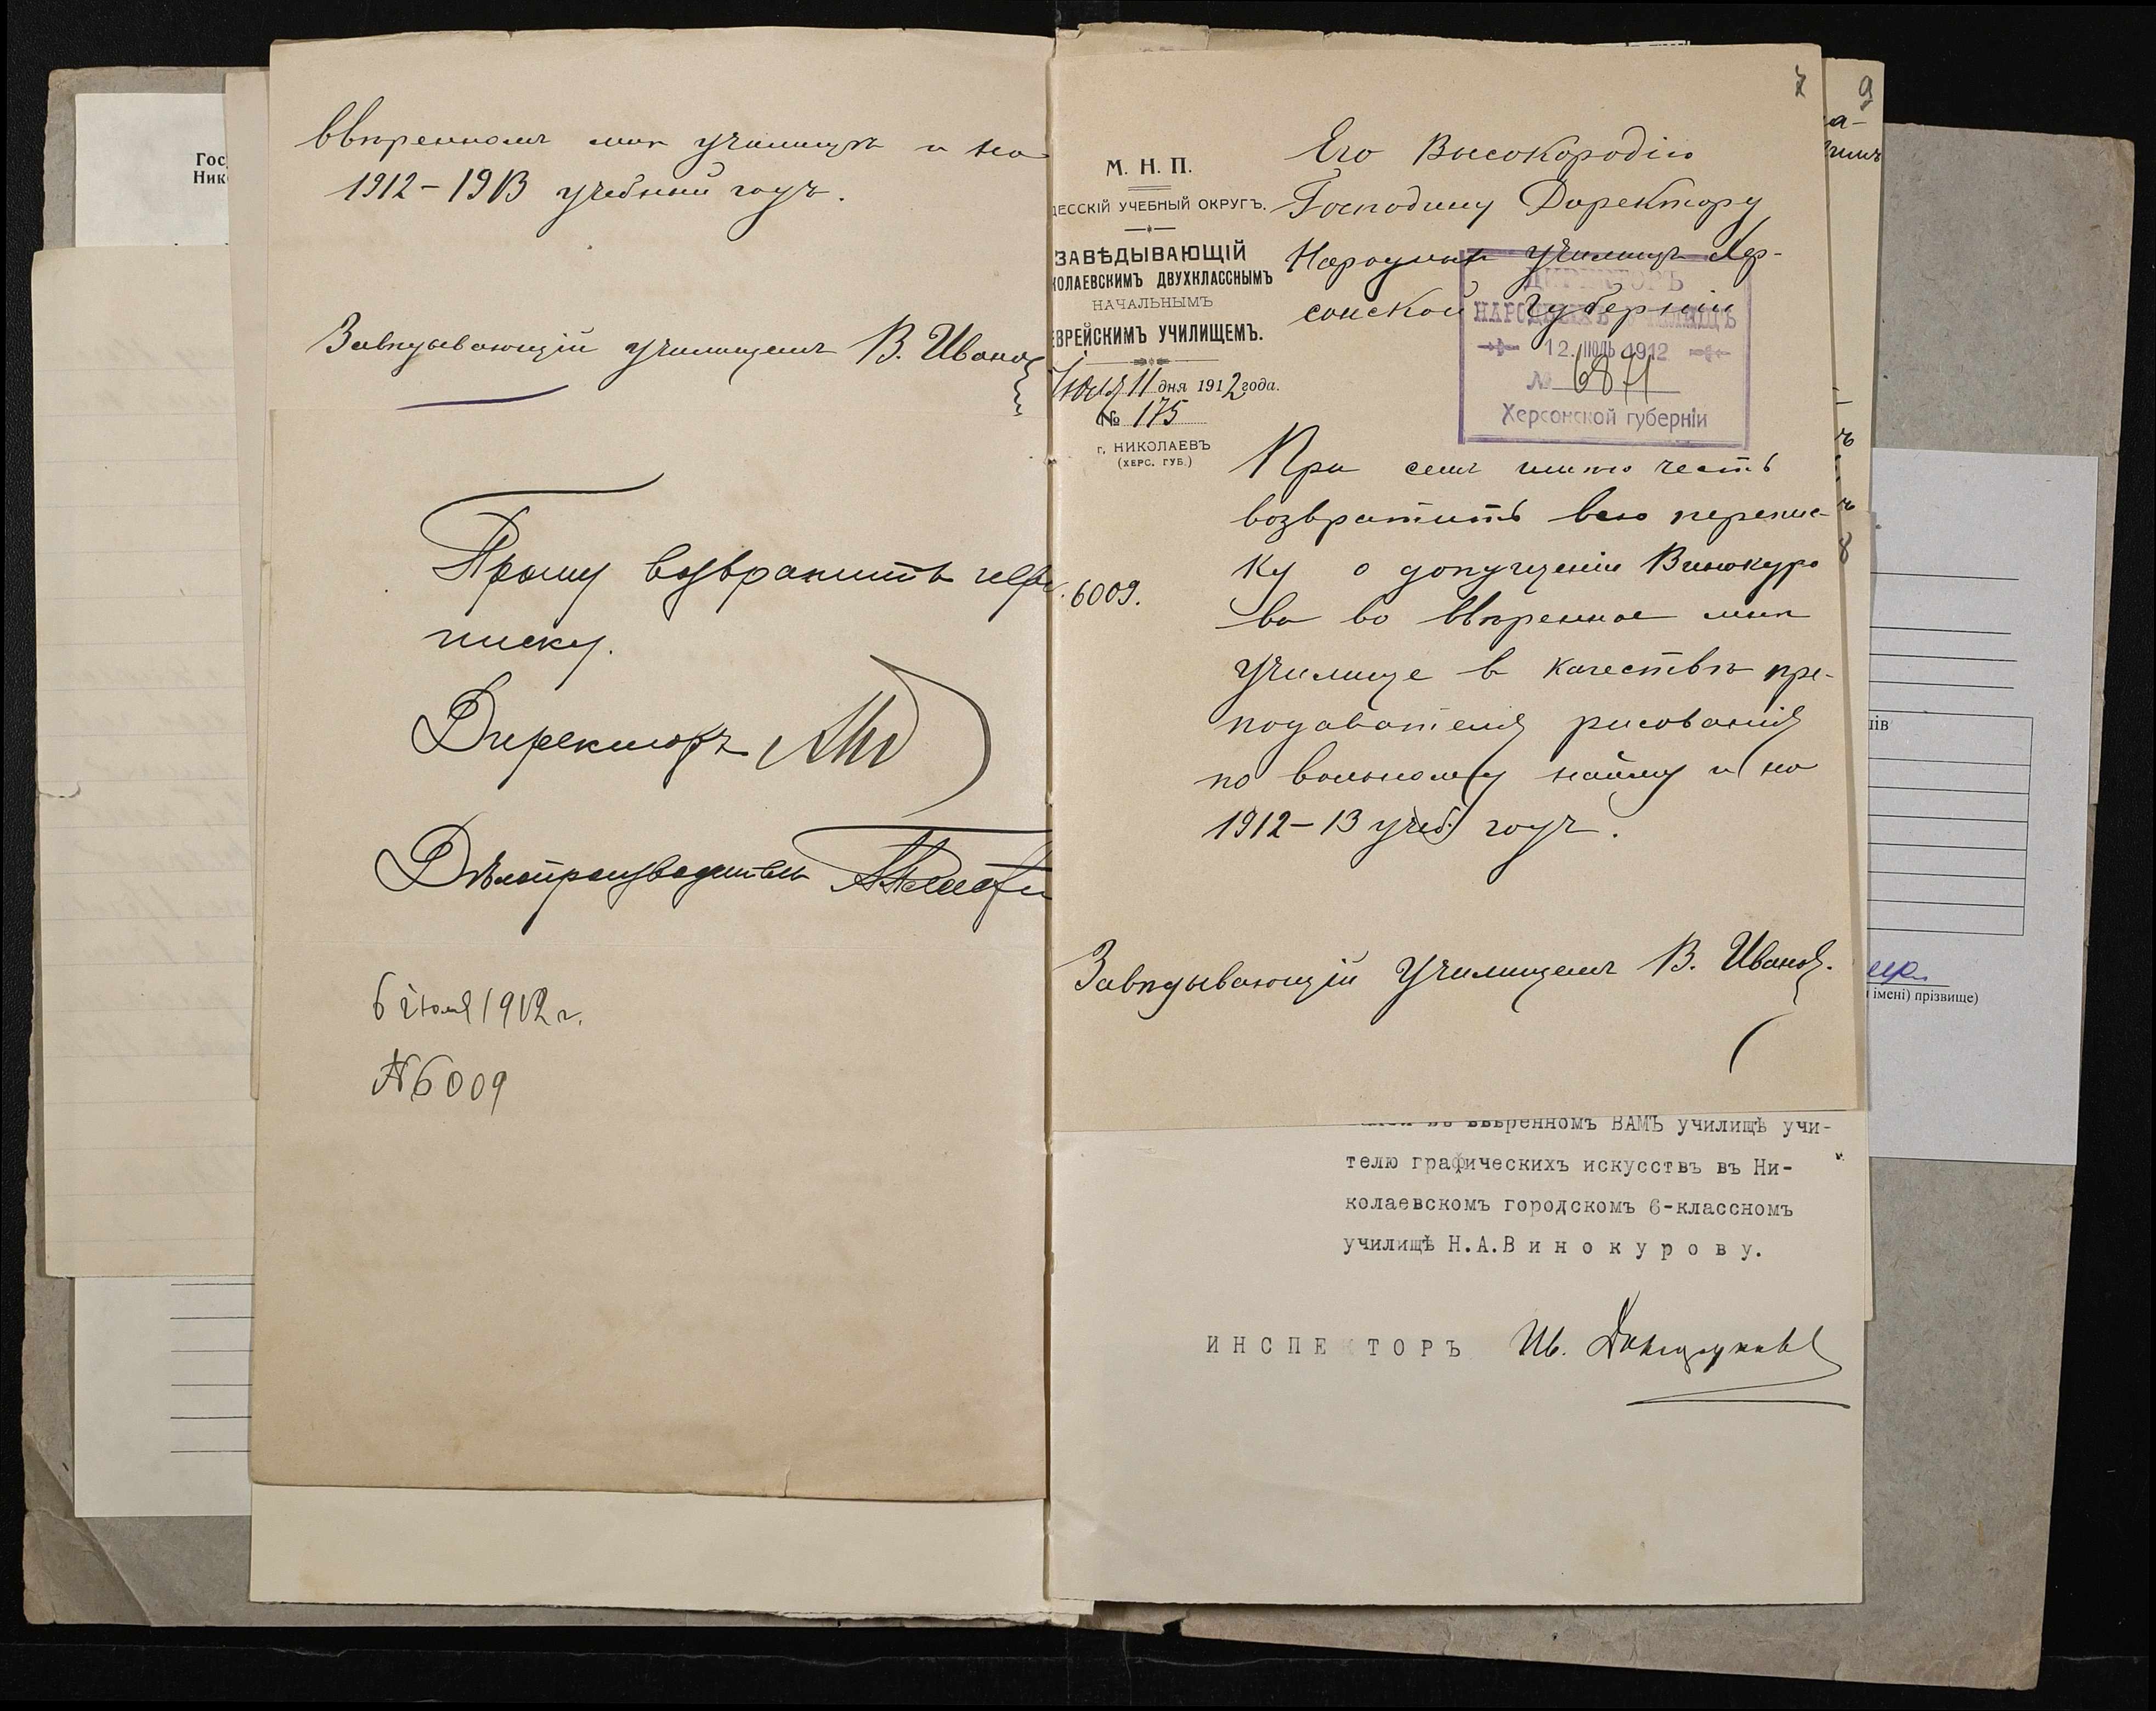 Гос
Ник
ввѣренномъ мнѣ училищѣ и на
1912-1913 учебный годъ.
Завѣдывающій училищемъ В. Иванов
Прошу возвратить пере
писку.
Директоръ
Дѣлопроизводитель
6 іюля 1912 г.
№ 6009
7
9
а-
М. Н. П.
ДЕССКІЙ УЧЕБНЫЙ ОКРУГЪ.
ЗАВѢДЫВАЮЩІЙ
КОЛАЕВСКИМЪ ДВУХКЛАССНЫМЪ
НАЧАЛЬНЫМЪ
ЕВРЕЙСКИМЪ УЧИЛИЩЕМЪ.
Іюля 11 дня 1912 года.
№ 175
г. НИКОЛАЕВЪ
(ХЕРС. ГУБ.)
6009.
Его Высокородію
Господину Директору
Народныхъ училищъ Хер-
сонской губерніи
ДИРЕКТОРЪ
НАРОДНЫХЪ УЧИЛИЩЪ
12. ІЮЛЬ 1912
№ 6871
Херсонской губерніи
При семъ имѣю честь
возвратить всю перепис-
ку о допущеніи Винокуро
ва во ввѣренное мнѣ
училище в качествѣ пре-
подавателя рисованія
по вольному найму и на
1912-13 учеб. годъ.
Завѣдывающій Училищемъ В. Иванов.
ввѣренномъ ВАМЪ училищѣ учи-
телю графическихъ искусствъ въ Ни-
колаевскомъ городскомъ 6-классномъ
училищѣ Н.А.В и н о к у р о в у.
И Н С П Е К Т О Р Ъ Ив.
ів
імені) прізвище)